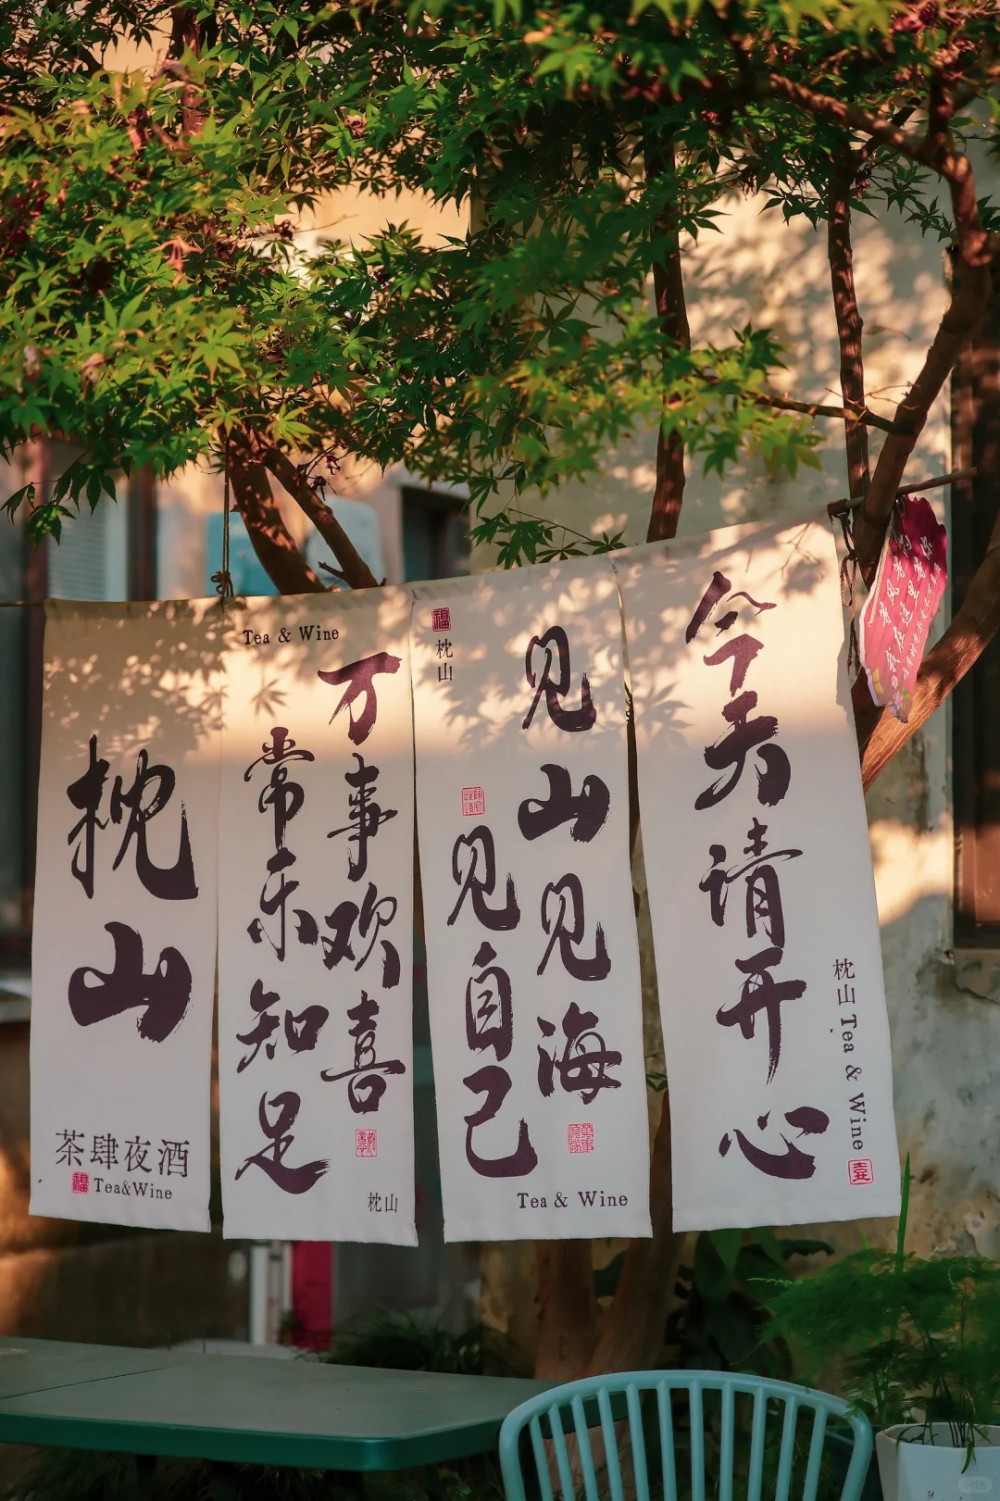 枕山
茶肆夜酒
福 Tea&Wine
Tea & Wine
万事欢喜
常乐知足
枕山
福
枕山
见山见海
见自己
Tea & Wine
今天请开心
枕山 Tea & Wine